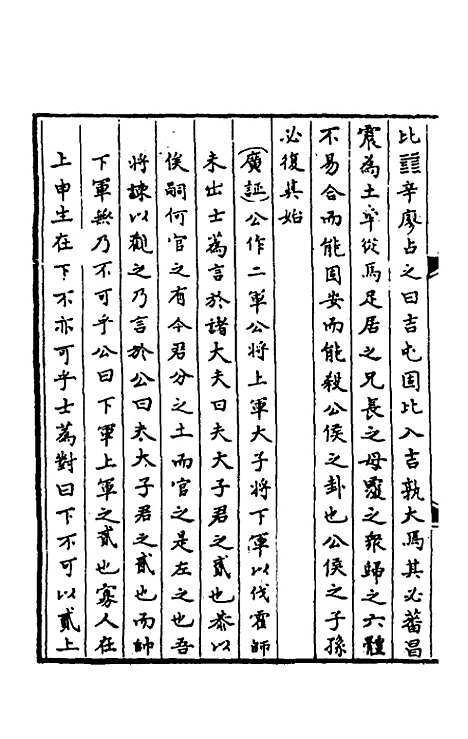 比䷇辛廖占之曰吉屯固比入吉孰大焉其必蕃昌
震為土車從馬足居之兄長之母覆之衆歸之六體
不易合而能固安而能殺公侯之卦也公侯之子孫
必復其始
廣証公作二軍公將上軍大子將下軍以伐霍師
未出士蔿言於諸大夫曰夫大子君之貳也恭以
俟嗣何官之有今君分之土而官之是左之也吾
將諫以觀之乃言於公曰夫大子君之貳也而帥
下軍無乃不可乎公曰下軍上軍之貳也寡人在
上申生在下不亦可乎士蔿對曰下不可以貳上